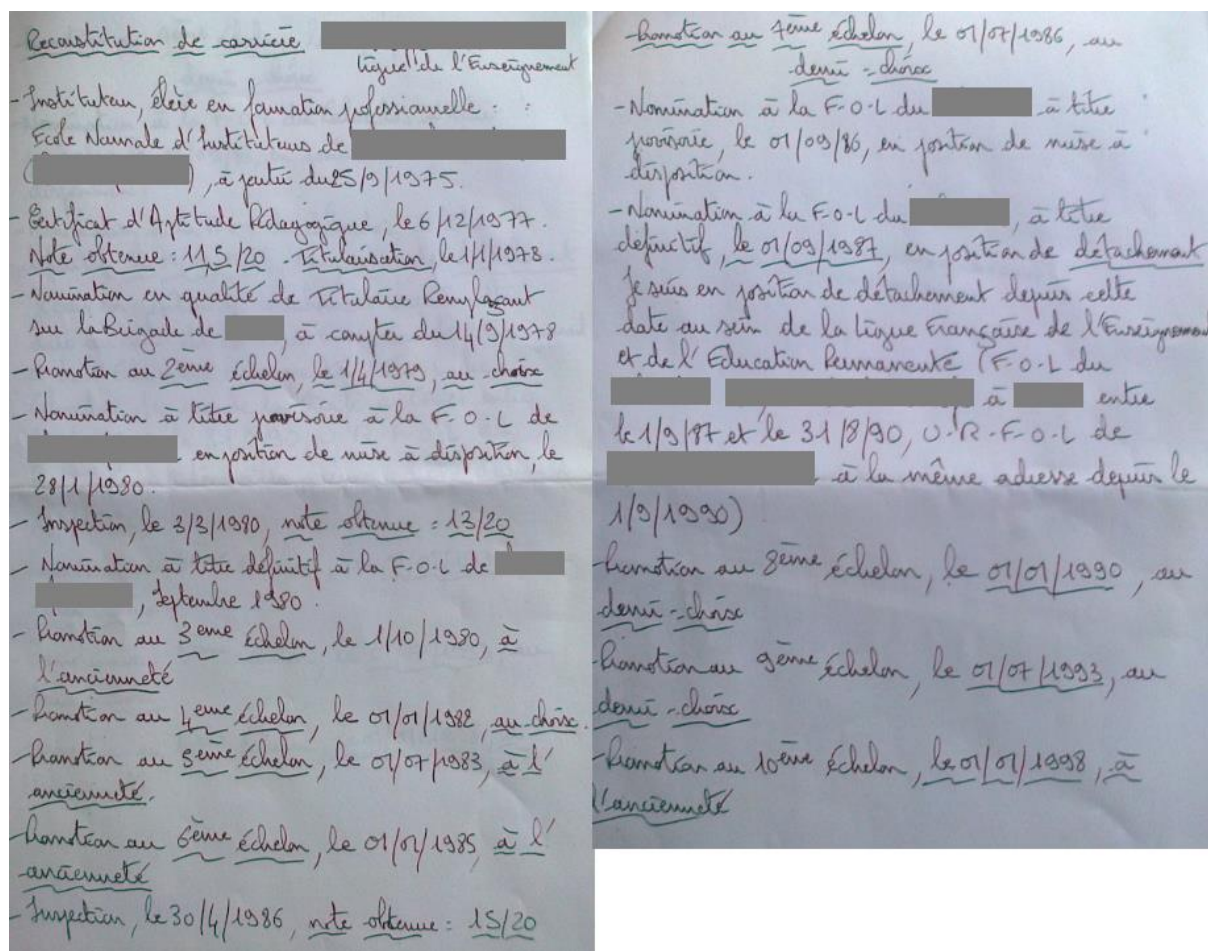 Reconstitution de carrière
Ligue de l'Enseignement
- Instituteur, élève en formation professionnelle :
Ecole Normale d'Instituteurs de
( ), à partir du 25/9/1975.
- Certificat d'Aptitude Pédagogique, le 6/12/1977.
Note obtenue : 11,5/20. Titularisation, le 1/1/1978.
- Nomination en qualité de Titulaire Remplaçant
sur la Brigade de , à compter du 14/9/1978
- Promotion au 2ème échelon, le 1/4/1979, au choix
- Nomination à titre provisoire à la F.O.L de
en position de mise à disposition, le
28/1/1980.
- Inspection, le 3/3/1980, note obtenue : 13/20
- Nomination à titre définitif à la F.O.L de
, Septembre 1980.
- Promotion au 3ème échelon, le 1/10/1980, à
l'ancienneté
- Promotion au 4ème échelon, le 01/01/1982, au choix.
- Promotion au 5ème échelon, le 01/07/1983, à l'
ancienneté.
- Promotion au 6ème échelon, le à l'
ancienneté
- Inspection, le 30/4/1986, note obtenue : 15/20
- Promotion au 7ème échelon, le 01/07/1986, au
demi-choix
- Nomination à la F.O.L du à titre
provisoire, le 01/09/86, en position de mise à
disposition.
- Nomination à la F.O.L du , à titre
définitif, le 01/09/1987, en position de détachement
Je suis en position de détachement depuis cette
date au sein de la Ligue Française de l'Enseignement
et de l'Education Permanente (F.O.L du
à entre
le 1/9/87 et le 31/8/90, U.R.F.O.L de
à la même adresse depuis le
1/9/1990)
- Promotion au 8ème échelon, le 01/01/1990, au
demi-choix
- Promotion au 9ème échelon, le 01/07/1993, au
demi-choix
- Promotion au 10ème échelon, le 01/01/1998, à
l'ancienneté